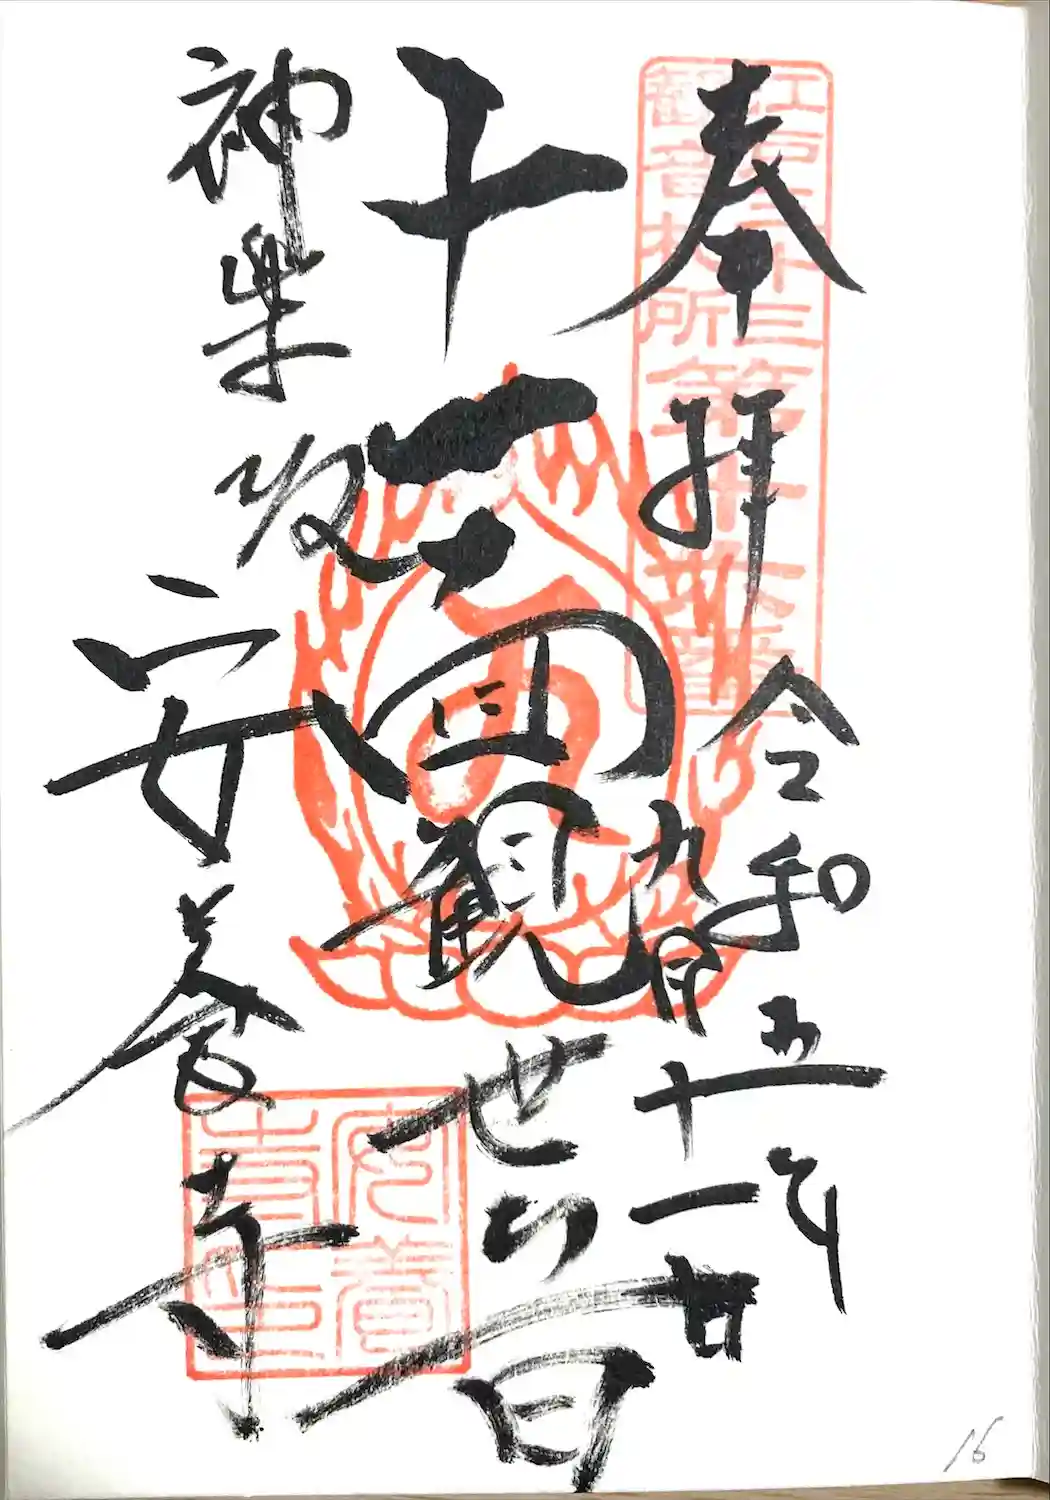 奉拝
令和五年
九月十一日
十一面観世音
神楽坂
安養寺
江戸三十三
観音札所第十六番
安養
寺印
16